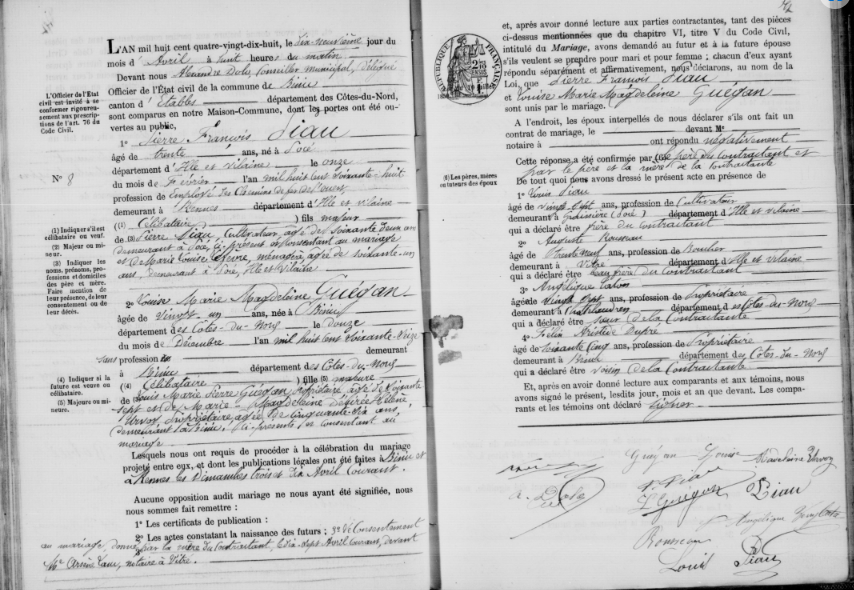 L'AN mil huit cent quatre-vingt-dix-huit, le dix-neuvième jour du
mois d'Avril à huit heures du matin
Devant nous Alexandre Conseiller municipal, délégué
Officier de l'État civil de la commune de Binic
canton d'Etables département des Côtes-du-Nord,
sont comparus en notre Maison-Commune, dont les portes ont été ou-
vertes au public,
L'Officier de l'État
civil est invité à se
conformer rigoureu-
sement aux prescrip-
tions de l'art. 76 du
Code Civil.
N° 8
1° Pierre François Piau
âgé de trente ans, né à
département d'Ille et Vilaine le onze
du mois de Février l'an mil huit cent soixante huit
profession de Employé des Chemins de fer de l'ouest
demeurant à Rennes département d'Ille et vilaine
(1) Célibataire ) fils majeur
de Pierre Piau, Cultivateur, âgé de soixante deux ans
demeurant à ci-présent et consentant au mariage
et de Marie Louise ménagère, âgée de soixante-un
ans, demeurant à Ille et Vilaine
(1) Indiquer s'il est
célibataire ou veuf.
(2) Majeur ou mi-
neur.
(3) Indiquer les
noms, prénoms, pro-
fessions et domiciles
des père et mère.
Faire mention de
leur présence, de leur
consentement ou de
leur décès.
2° Louise Marie Magdeleine Guégan
âgée de vingt-un ans, née à Binic
département des Côtes-du-Nord le douze
du mois de Décembre l'an mil huit cent soixante-seize
sans profession demeurant
à Binic département des Côtes-du-Nord
(4) Célibataire ) fille mineure
de Louis Marie Pierre Guégan, propriétaire âgé de soixante
sept et de Marie Magdeleine Désirée Hélène
propriétaire âgée de cinquante-dix ans,
demeurant à Binic, ci-présents et consentant au
mariage
(4) Indiquer si la
future est veuve ou
célibataire.
(5) Majeure ou mi-
neure.
Lesquels nous ont requis de procéder à la célébration du mariage
projeté entre eux, et dont les publications légales ont été faites à Binic et
à Rennes les dimanches trois et dix Avril Courant.
Aucune opposition audit mariage ne nous ayant été signifiée, nous
nous sommes fait remettre :
1° Les certificats de publication :
2° Les actes constatant la naissance des futurs ; 3° le Consentement
au mariage, donné par la mère du Contractant, le dix-sept Avril Courant, devant
Me notaire à Vitré.
RÉPUBLIQUE FRANÇAISE
et, après avoir donné lecture aux parties contractantes, tant des pièces
ci-dessus mentionnées que du chapitre VI, titre V du Code Civil,
intitulé du Mariage, avons demandé au futur et à la future épouse
s'ils veulent se prendre pour mari et pour femme ; chacun d'eux ayant
répondu séparément et affirmativement, nous déclarons, au nom de la
Loi, que Pierre François Piau
et Louise Marie Magdeleine Guégan
sont unis par le mariage.
A l'endroit, les époux interpellés de nous déclarer s'ils ont fait un
contrat de mariage, le devant Me
notaire à ont répondu négativement
Cette réponse a été confirmée par (6) le père du Contractant et
par le père et la mère de la Contractante
De tout quoi nous avons dressé le présent acte en présence de
(6) Les pères, mères
ou tuteurs des époux
1° Louis Piau
âgé de vingt sept ans, profession de Cultivateur
demeurant à département d'Ille et vilaine
qui a déclaré être frère du Contractant
2° Auguste Rousseau
âgé de ans, profession de
demeurant à Vitré département d'Ille et vilaine
qui a déclaré être beau-frère du Contractant
3° Angélique
âgée de vingt sept ans, profession de Propriétaire
demeurant à département des Côtes du Nord
qui a déclaré être soeur de la Contractante
4° Félix Aristide
âgé de soixante cinq ans, profession de Propriétaire
demeurant à Binic département des Côtes-du-Nord
qui a déclaré être voisin de la Contractante
Et, après en avoir donné lecture aux comparants et aux témoins, nous
avons signé le présent, lesdits jour, mois et an que devant. Les compa-
rants et les témoins ont déclaré signer
Guégan Louise
P. Piau
L Guégan Piau
Angélique
Rousseau
Louis Piau